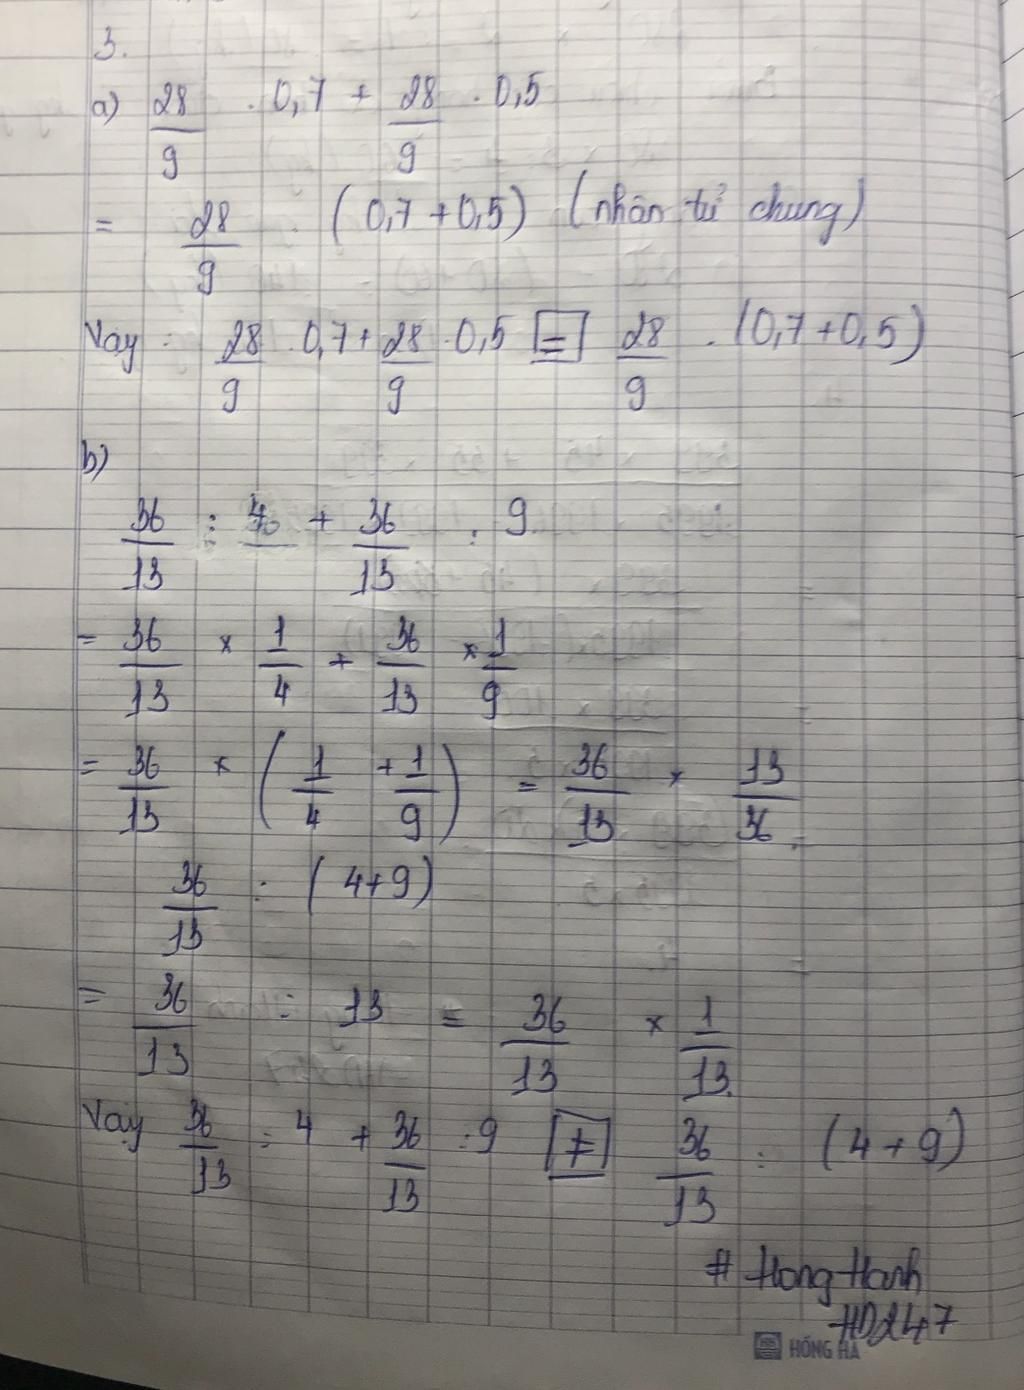 3.
a) 28/9 . 0,7 + 28/9 . 0,5
= 28/9 . (0,7 + 0,5) (nhân tử chung)
Vậy : 28/9 . 0,7 + 28/9 . 0,5 = 28/9 . (0,7 + 0,5)
b)
36/13 : 4 + 36/13 : 9
= 36/13 × 1/4 + 36/13 × 1/9
= 36/13 × (1/4 + 1/9) = 36/13 × 13/36.
36/13 : (4+9)
= 36/13 : 13 = 36/13 × 1/13.
Vậy 36/13 : 4 + 36/13 : 9 ≠ 36/13 : (4 + 9)
# HongHanh
HD247
HỒNG HÀ